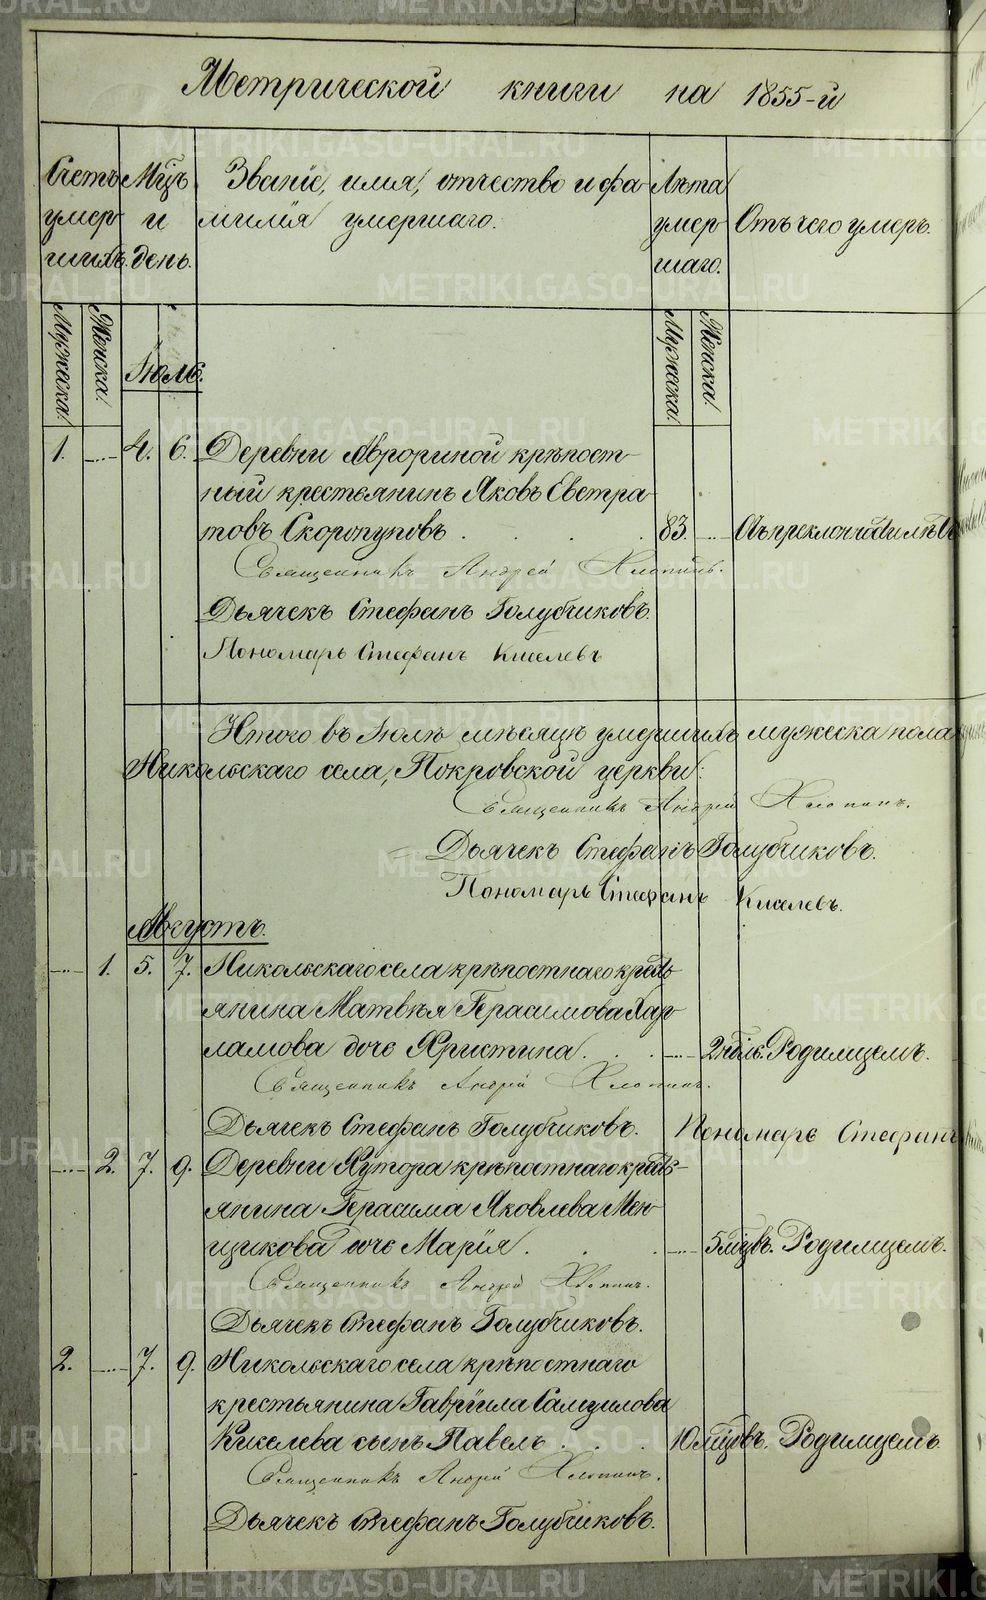 Метрической книги на 1855-й
Счетъ умер шихъ.
Мѣцъ и день.
Званіе, имя, отчество и фа
милія умершаго.
Лѣта умер шаго.
Отъ чего умеръ.
Мужеска.
Женска.
Мужеска.
Женска.
Іюль.
1. 4. 6. Деревни Аврориной крѣпост-
ный крестьянинъ Яковъ Евстра
товъ Скоропуповъ 83.
Священникъ Андрей Хлопинъ.
Дьячекъ Стефанъ Голубчиковъ.
Пономарь Стефанъ Киселевъ
Итого въ Іюлѣ мѣсяцѣ умершихъ мужеска пола
Никольскаго села, Покровской церкви:
Священникъ Андрей Хлопинъ.
Дьячекъ Стефанъ Голубчиковъ.
Пономарь Стефанъ Киселевъ.
Августъ.
1. 5. 7. Никольскаго села крѣпостнаго кресть
янина Матвѣя Герасимова Хар
ламова дочь Христина. Родимцемъ.
Священникъ Андрей Хлопинъ.
Дьячекъ Стефанъ Голубчиковъ. Пономарь Стефанъ
2. 7. 9. Деревни Хутора крѣпостнаго кресть-
янина Герасима Яковлева Мен
щикова дочь Марія. 5 мцвъ. Родимцемъ.
Священникъ Андрей Хлопинъ.
Дьячекъ Стефанъ Голубчиковъ.
2. 7. 9. Никольскаго села крѣпостнаго
крестьянина Гавріила Самуилова
Кикелева сынъ Павелъ. 10 мцовъ. Родимцемъ.
Священникъ Андрей Хлопинъ.
Дьячекъ Стефанъ Голубчиковъ.
METRIKI.GASO-URAL.RU